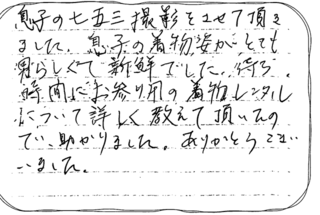 息子の七五三撮影をさせて頂き
ました。息子の着物姿がとても
男らしくて新鮮でした。待ち
時間にお参り用の着物レンタル
について詳しく教えて頂いたの
で、助かりました。ありがとうござ
いました。